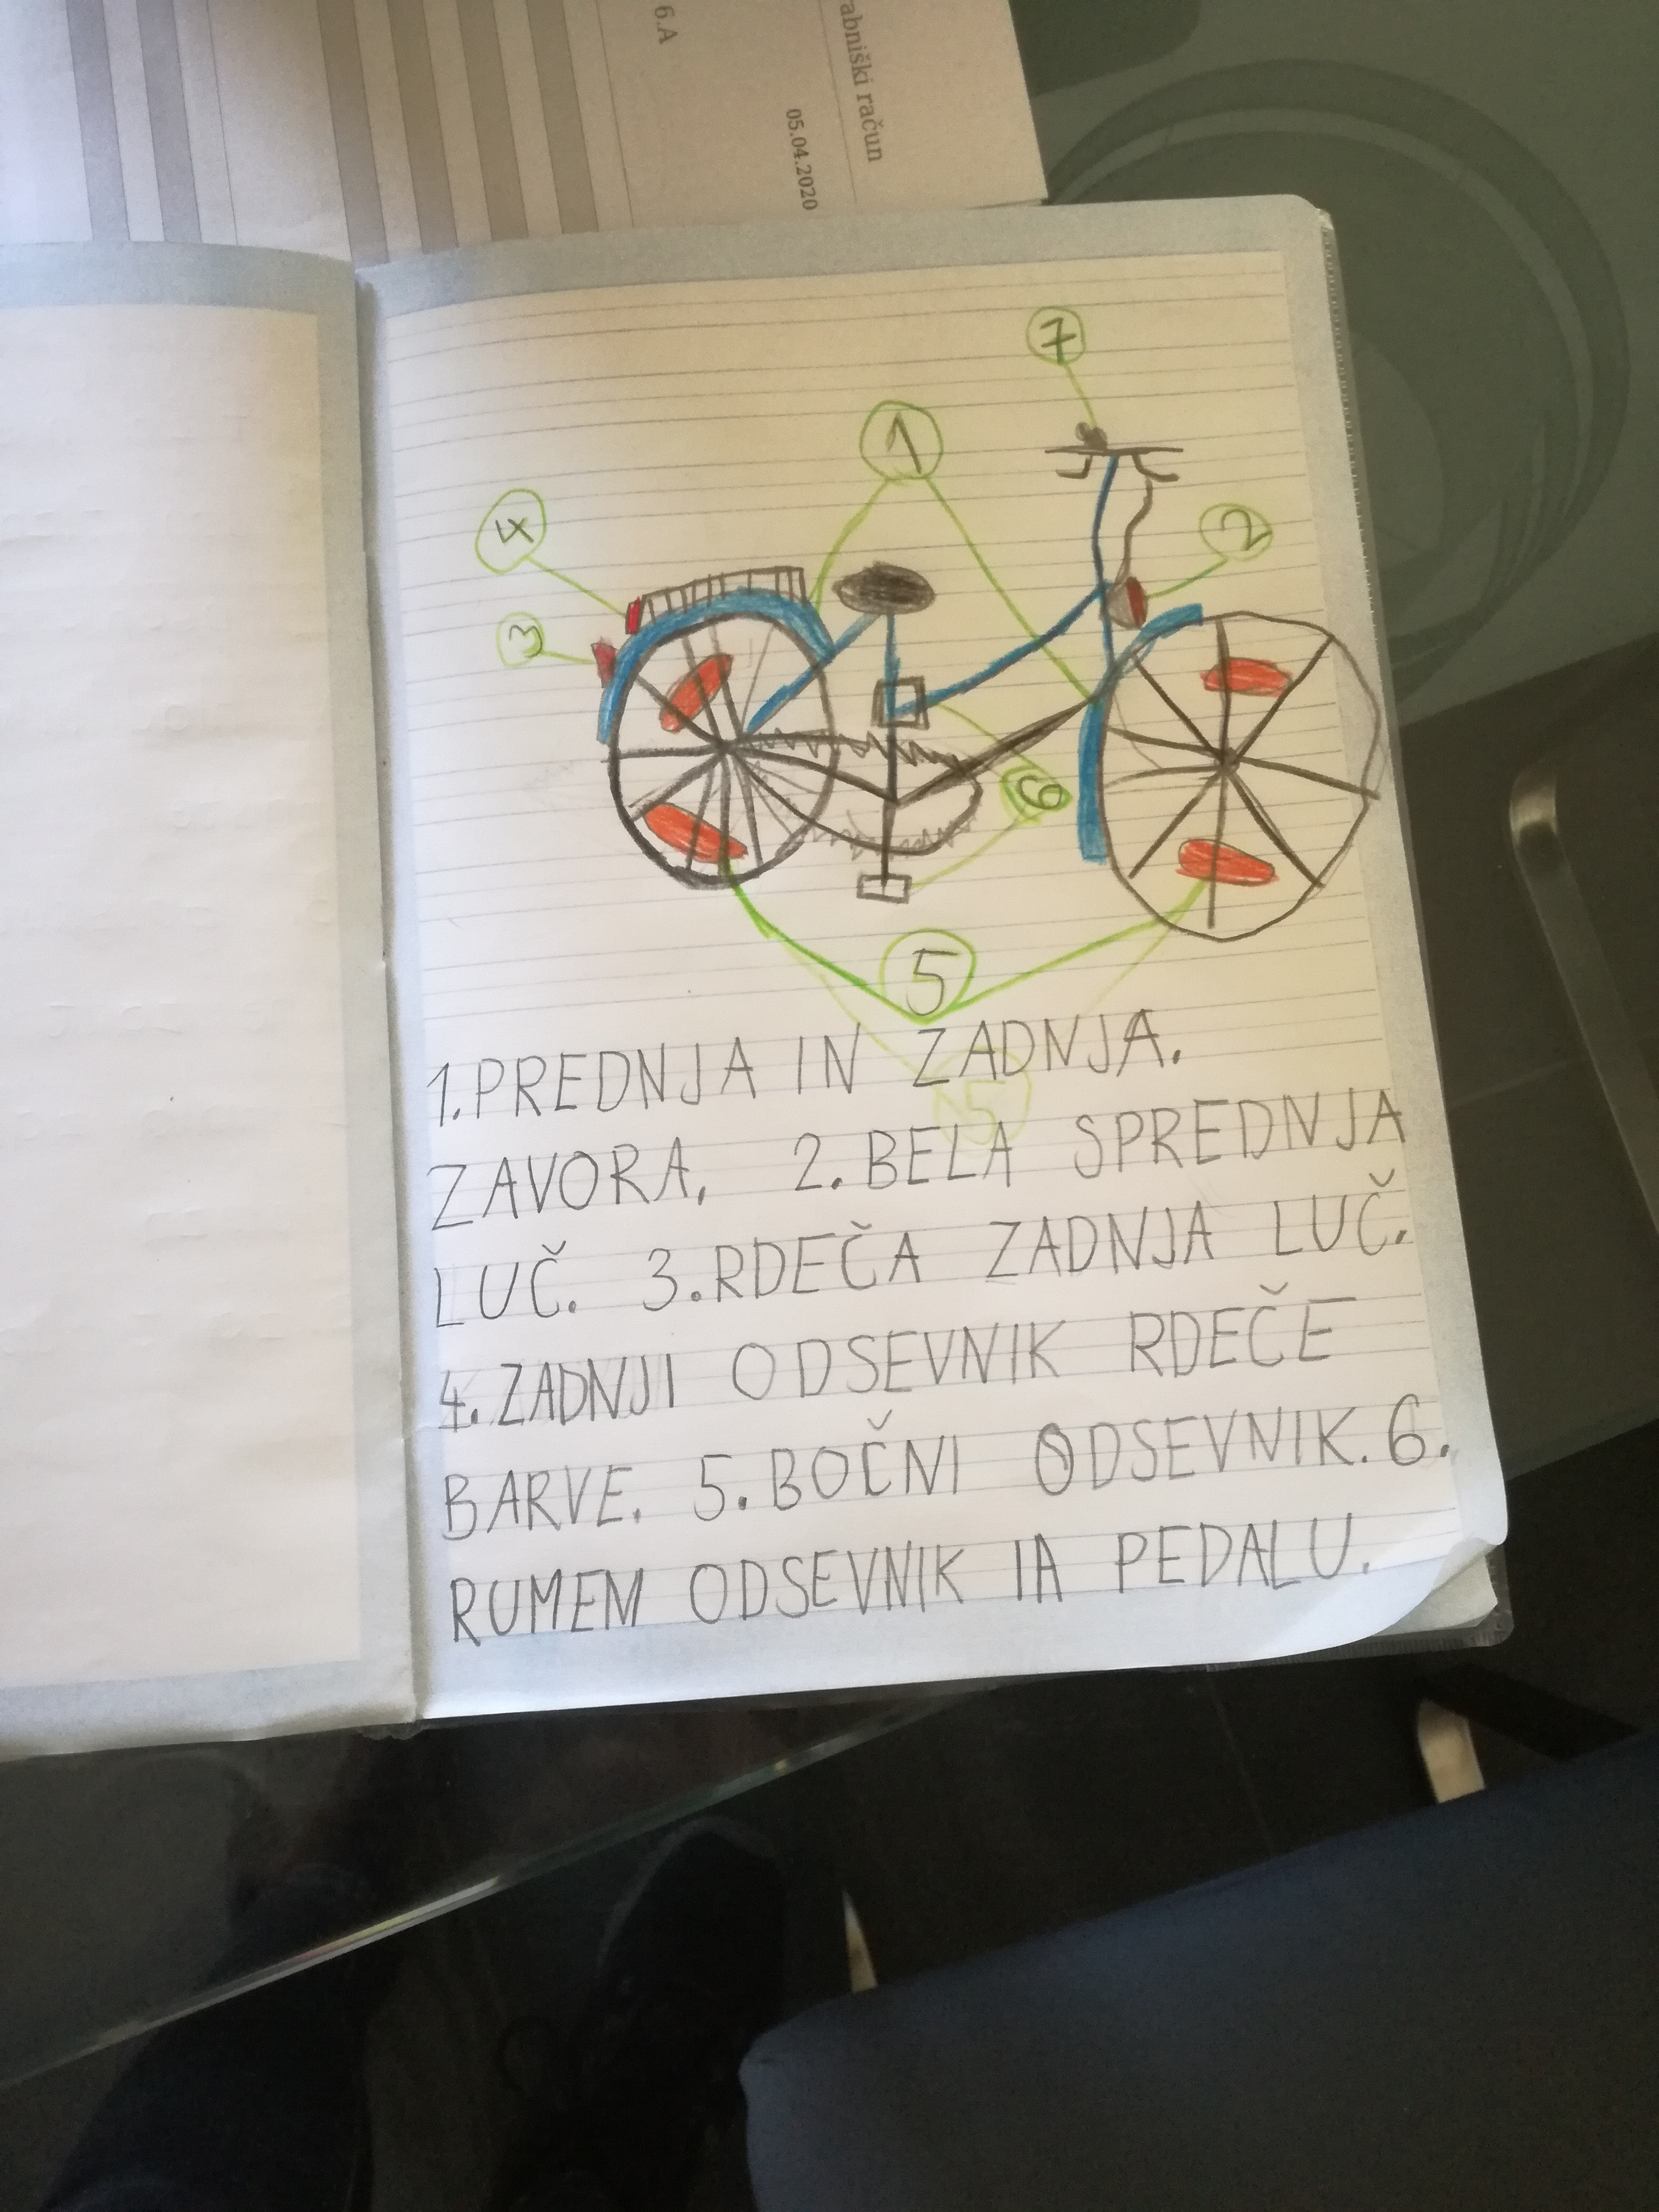 6.A
abniški račun
05.04.2020
7
1
4
2
3
6
5
5
1. PREDNJA IN ZADNJA.
ZAVORA. 2. BELA SPREDNJA
LUČ. 3. RDEČA ZADNJA LUČ.
4. ZADNJI ODSEVNIK RDEČE
BARVE. 5. BOČNI ODSEVNIK. 6.
RUMEM ODSEVNIK IA PEDALU.